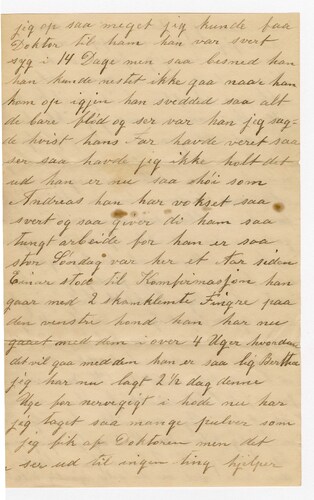 jeg op saa meget jeg kunde faa
Doktor til ham han var svert
syg i 14 Dage men saa besned han
han kunde nestet ikke gaa naar han
kom op igjen han svedded saa alt
de bare flød og ser var han jeg sag-
de hvist hans Far havde veret saa
ser saa havde jeg ikke holt det
ud han er nu saa høi som
Andreas han har vokset saa
svert og saa giver di ham saa
tungt arbeide for han er saa
stor Søndag var her et Aar siden
Einer stod til Komfirmasjon han
gaar med 2 skamklemte Fingre paa
den venstre hand han har nu
gaaet med dem i over 4 Uger hvordan
det vil gaa med dem han er saa lig Bertha
jeg har nu lagt 2½ dag denne
Uge for nervegigt i hode nu har
jeg taget saa mange pulver som
jeg fik af Doktoren men det
ser ud til ingen ting hjelper